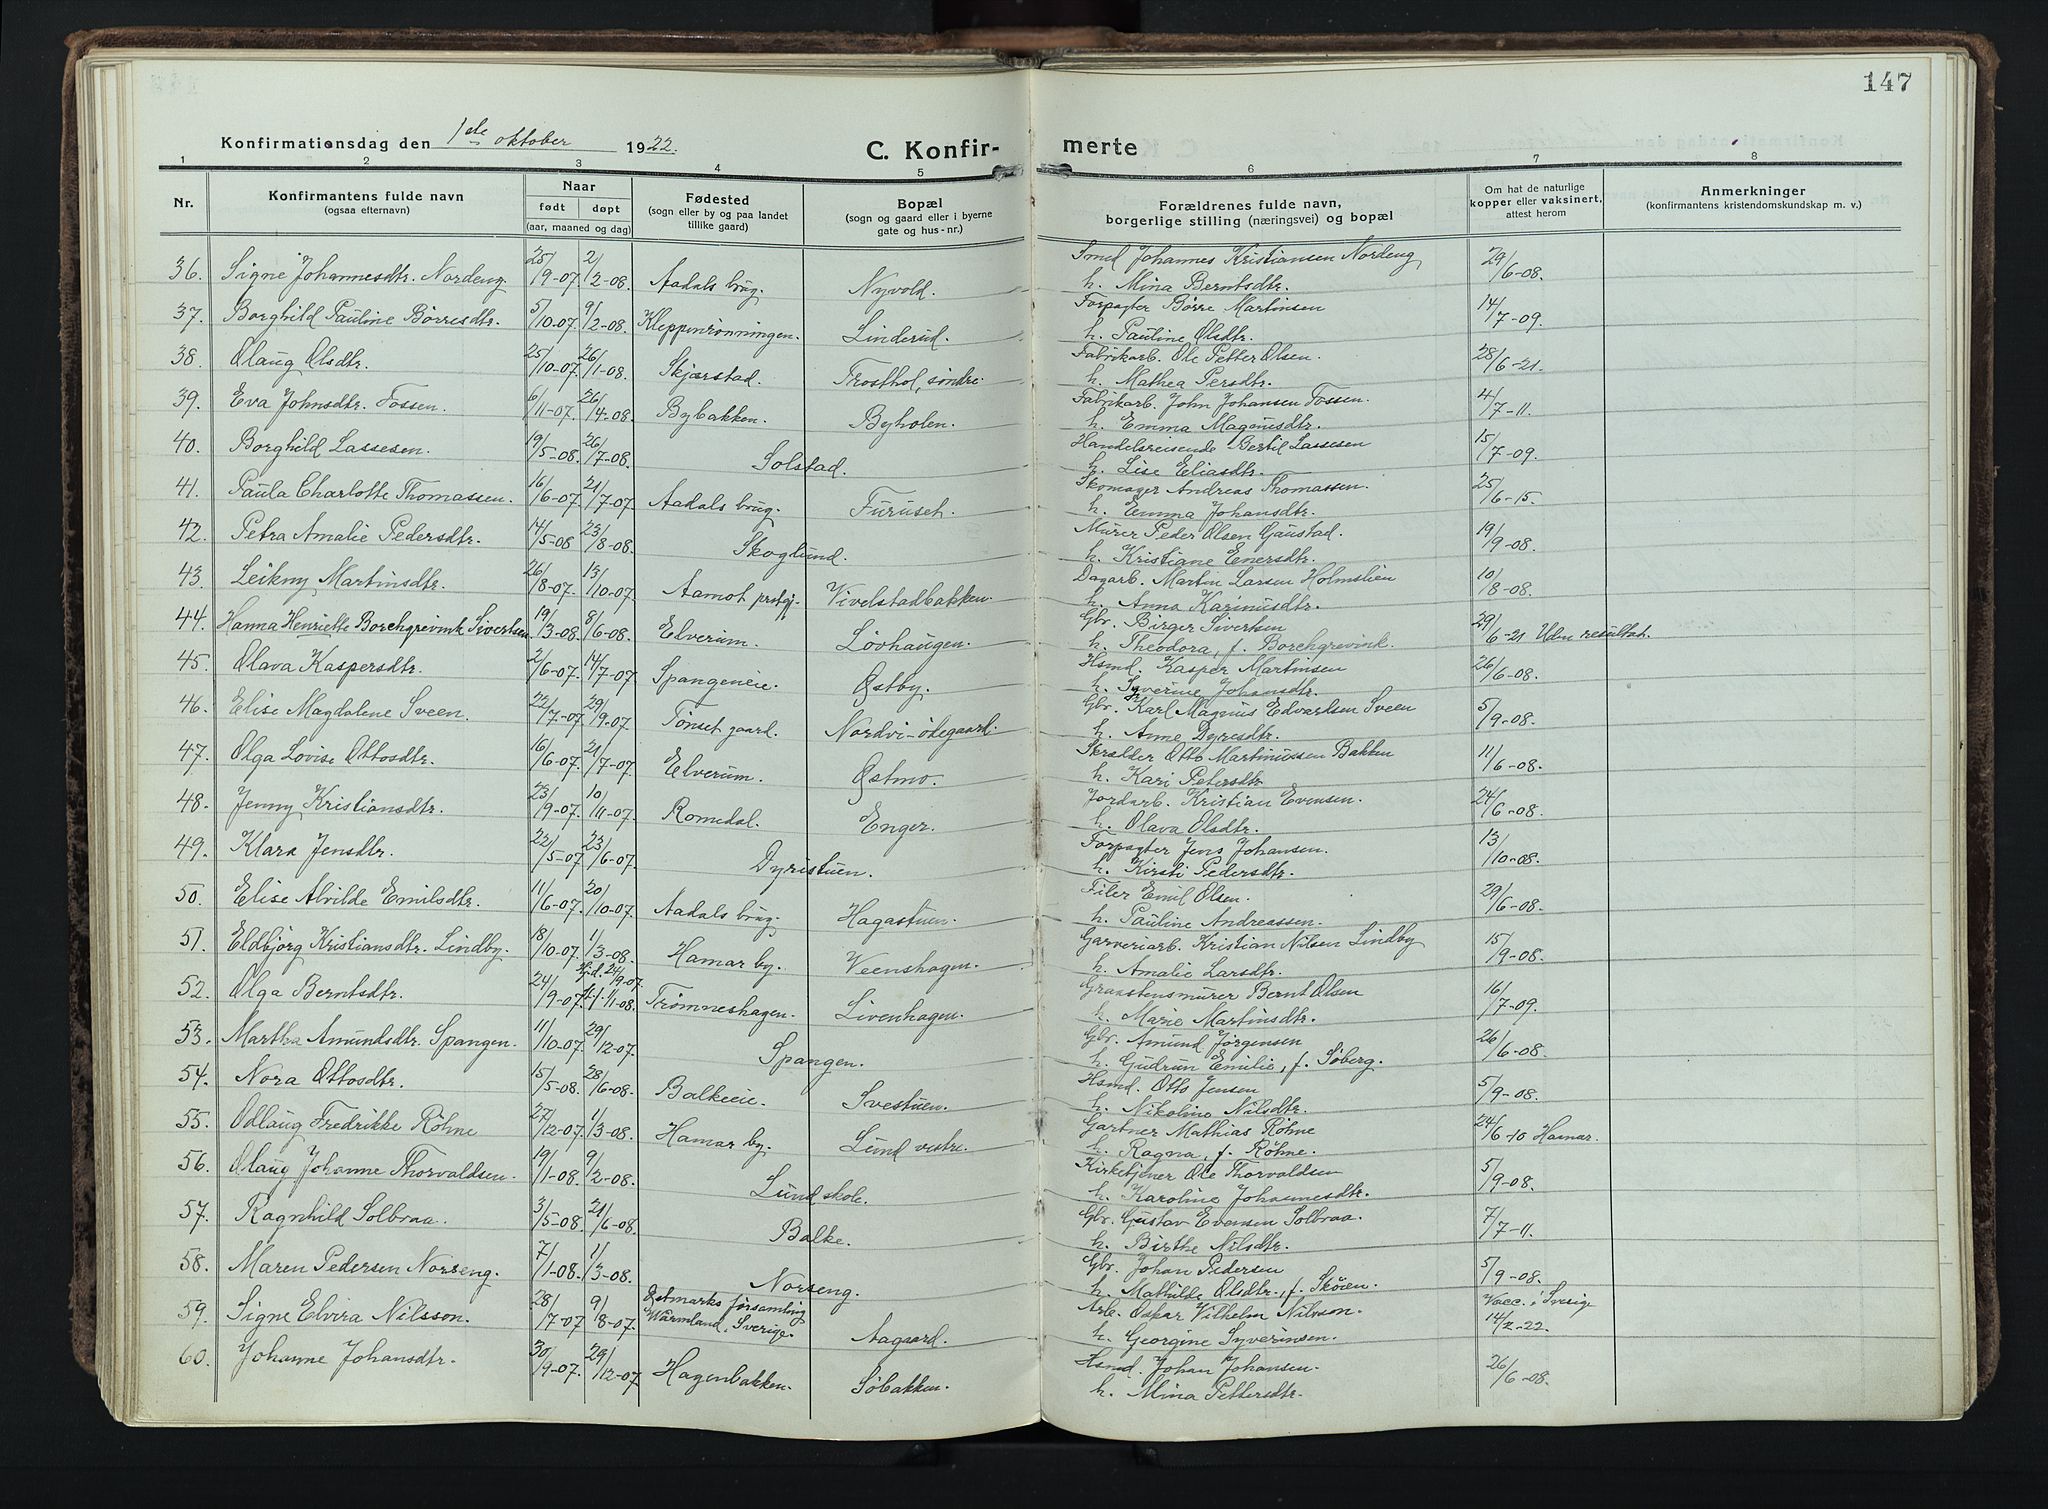 147
Konfirmationsdag den 1ste oktober 1922.
C. Konfir-merte
1 2 3 4 5 6 7 8
Nr.
Konfirmantens fulde navn
(ogsaa efternavn)
Naar
født døpt
(aar, maaned og dag)
Fødested
(sogn eller by og paa landet
tillike gaard)
Bopæl
(sogn og gaard eller i byerne
gate og hus-nr.)
Forældrenes fulde navn,
borgerlige stilling (næringsvei) og bopæl
Om hat de naturlige
kopper eller vaksinert,
attest herom
Anmerkninger
(konfirmantens kristendomskundskap m. v.)
36. Signe Johannesdtr. Nordeng. 25/9-07. 2/2-08. Aadals brug. Nyvold. Smed Johannes Kristiansen Nordeng 29/6-08.
h. Mina Berntsdtr.
37. Borghild Pauline Børresdtr. 5/10-07. 9/2-08. Kleppenrønningen. Linderud. Forpagter Børre Martinsen 14/7-09.
h. Pauline Olsdtr.
38. Olaug Olsdtr. 25/10-07. 26/1-08. Skjærstad. Frosthol, søndre. Fabrikarb. Ole Petter Olsen. 28/6-21.
h. Mathea Persdtr.
39. Eva Johnsdtr. Fossen. 6/11-07. 26/4-08. Bybakken. Byholen. Fabrikarb. John Johansen Fossen. 4/7-11.
h. Emma Magnusdtr.
40. Borghild Lassesen. 19/5-08. 26/7-08. Solstad. Handelsreisende Bertil Lassesen 15/7-09.
h. Lise Eliasdtr.
41. Paula Charlotte Thomassen. 16/6-07. 21/7-07. Aadals brug. Furuset. Skomager Andreas Thomassen. 25/6-15.
h. Emma Johansdtr.
42. Petra Amalie Pedersdtr. 14/5-08 23/8-08. Skoglund. Murer Peder Olsen Gaustad. 19/9-08.
h. Kristiane Enersdtr.
43. Leikny Martinsdtr. 26/8-07. 13/10-07. Aamot prestgj. Vivelstadbakken. Dagarb. Martin Larsen Holmslien 10/8-08.
h. Anna Karinusdtr.
44. Hanna Henriette Borchgrevink Sivertsen 19/3-08. 8/6-08. Elverum. Løvhaugen. Gbr. Birger Sivertsen 29/6-21 Uden resultat.
h. Theodora, f. Borchgrevink.
45. Olava Kaspersdtr. 2/6-07. 14/7-07 Spangeneie. Østby. Hsmd. Kasper Martinsen 26/6-08.
h. Syverine Johansdtr.
46. Elise Magdalene Sveen. 22/7-07. 29/9-07. Tønset gaard. Nordvi-ødegaard. Gbr. Karl Magnus Edvardsen Sveen 5/9-08.
h. Anne Dyresdtr.
47. Olga Lovise Ottosdtr. 16/6-07. 21/7-07. Elverum. Østmo. Skrædder Otto Martinussen Bakken 11/6-08.
h. Kari Petersdtr
48. Jenny Kristiansdtr. 23/9-07. 10/11-07. Romedal. Enger. Jordarb. Kristian Evensen. 24/6-08.
h. Olava Olsdtr.
49. Klara Jensdtr. 22/5-07. 23/6-07. Dyristuen. Forpagter Jens Johansen. 13/10-08.
h. Kirsti Pedersdtr.
50. Elise Alvilde Emilsdtr. 11/6-07. 20/10-07. Aadals brug. Hagastuen. Filer Emil Olsen. 29/6-08.
h. Pauline Andreassen.
51. Eldbjørg Kristiansdtr. Lindby. 18/10-07. 1/3-08. Hamar by. Veenshagen. Garveriarb. Kristian Nilsen Lindby 15/9-08.
h. Amalie Larsdtr.
52. Olga Berntsdtr. 24/9-07. Hjd. 24/9-07. 1/11-08. Trømneshagen. Livenhagen. Graastensmurer Bernt Olsen 16/7-09.
h. Marie Martinsdtr.
53. Martha Amundsdtr. Spangen. 11/10-07. 29/12-07. Spangen. Gbr. Amund Jørgensen 26/6-08.
h. Gudrun Emilie, f. Søberg.
54. Nora Ottosdtr. 15/5-08. 28/6-08. Balkeeie. Svestuen. Hsmd. Otto Jensen 5/9-08.
h. Nikoline Nilsdtr.
55. Odlaug Fredrikke Röhne 27/12-07. 1/3-08. Hamar by. Lund vestre. Gartner Mathias Röhne 24/6-10 Hamar.
h. Ragna, f. Röhne.
56. Olaug Johanne Thorvaldsen. 19/1-08. 9/2-08. Lund skole. Kirketjener Ole Thorvaldsen 5/9-08.
h. Karoline Johannesdtr.
57. Ragnhild Solbraa. 3/5-08. 21/6-08. Balke. Gbr. Gustav Evensen Solbraa. 7/7-11.
h. Birthe Nilsdtr.
58. Maren Pedersen Norseng. 7/1-08. 1/3-08. Norseng. Gbr. Johan Pedersen 5/9-08.
h. Mathilde Olsdtr., f. Skøien.
59. Signe Elvira Nilsson. 28/7-07 9/8-07. Østmarks församling Wärmland, Sverige. Aagaard. Arb. Oskar Vilhelm Nilsson. Vacc. i Sverige 14/2-22.
h. Georgine Syverinsen.
60. Johanne Johansdtr. 30/9-07. 29/12-07. Hagenbakken. Søbakken. Hsmd. Johan Johansen. 26/6-08.
h. Mina Pettersdtr.